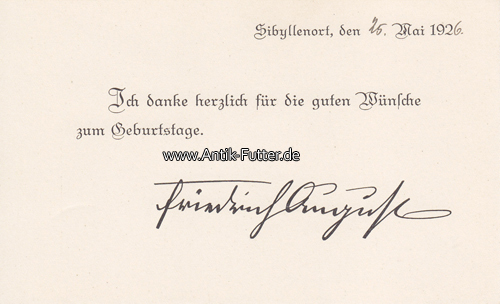 Sibyllenort, den 25. Mai 1926.
Ich danke herzlich für die guten Wünsche
zum Geburtstage.
www.Antik-Futter.de
Friedrich August